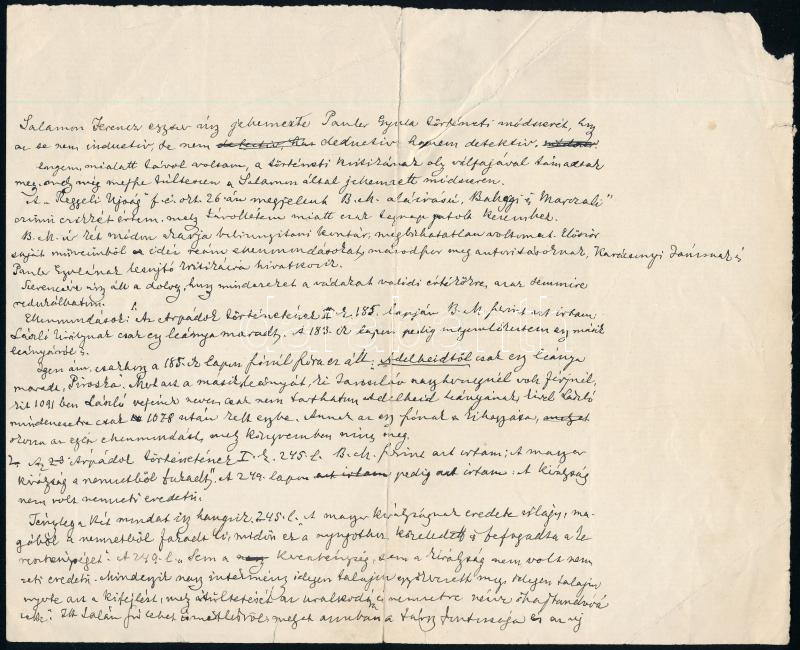 Salamon Ferencz egyszer úgy jellemezte Pauler Gyula történeti módszerét, hogy
az se nem inductiv, se nem deductiv hanem detektiv,
engem, mialatt távol voltam, a történeti kritikának oly válfajával támadtak
meg, mely még messze túltesz a Salamon által jellemzett módszeren.
A „Reggeli Ujság" f. é. okt. 26-án megjelent B. M. aláirású, „Balogi és Marczali"
czimű czikkét értem, mely távollétem miatt csak tegnap jutott kezembe.
B. M. úr két módon akarja bebizonyitani kontár, megbizhatatlan voltomat. Először
saját műveimből idéz reám ellenmondásokat, másodszor meg autoritásoknak, Karácsonyi Jánosnak és
Pauler Gyulának lesujtó kritikáira hivatkozik.
Szerencsére úgy áll a dolog, hogy mindezeket a vádakat valódi értékökre, azaz semmire
redukálhatom.
Ellenmondások: 1. Az Árpádok történetének II. k. 185. lapján B. M. szerint azt irtam
László királynak csak egy leánya maradt. A 183. ik lapon pedig megemlékeztem egy másik
leányáról is.
Igen ám, csakhogy a 185. ik lapon szóról szóra ez áll: „Adelheidtól csak egy leánya
maradt, Piroska. Mert azt a másik leányát, ki Jaroszláv nagyhercegnél volt férjnél,
kit 1091 ben László vejének nevez, csak nem tarthatom Adelheid leányának, kivel László
mindenesetre csak 1078 után kelt egybe. Annak az egy szónak a kihagyása,
okozza az egész ellenmondást, mely könyvemben nincs meg.
2. Az Árpádok történetének I. k. 245. l. B. M. szerint azt irtam: A magyar
királyság a nemzetből fakadt", A 249. lapon pedig azt irtam: A királyság
nem volt nemzeti eredetü.
Tényleg a két mondat igy hangzik, 245. l. „A magyar királyságnak eredete világos, ma-
gából a nemzetből fakadt ki, midőn ez a nyugothoz közeledett és befogadta a ke-
reszténységet". A 249. l. „Sem a kereszténység, sem a királyság nem volt nem-
zeti eredetü. Mindenik nagy intézmény idegen talajon gyökerezett meg, idegen talajon
nyerte azt a kifejlést, mely átültetését az uralkodóra, a nemzetre nézve óhajtandóvá
tette". Itt talán szó lehet ismétlésről, melyet azonban a tárgy fontossága és az új